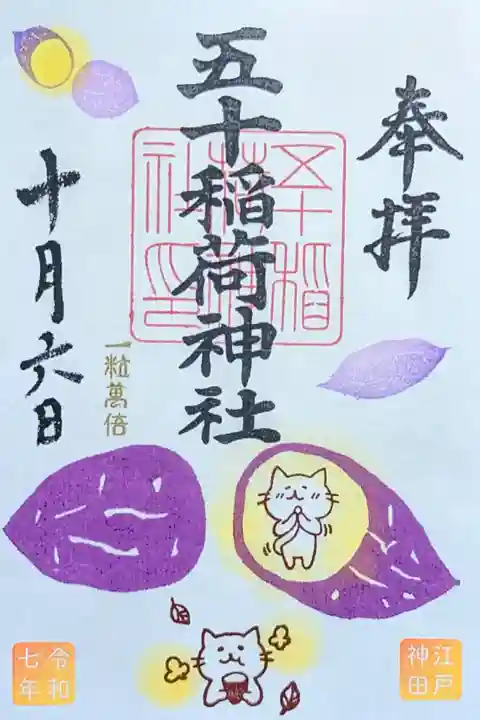 奉拝
五十稲荷神社
五十稲
荷神
社印
十月六日
一粒萬倍
江戸
神田
令和
七年